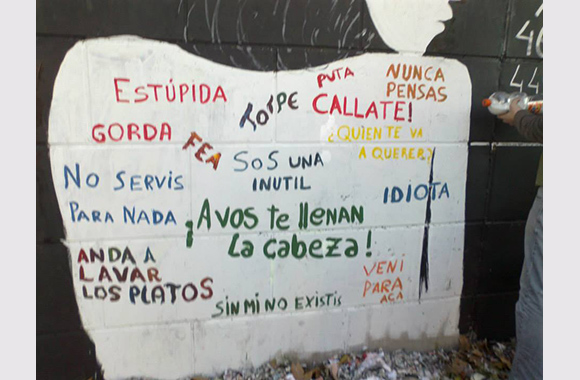 ESTÚPIDA
TORPE
PUTA
CALLATE!
NUNCA
PENSAS
GORDA
FEA
¿QUIEN TE VA
A QUERER?
SOS UNA
INUTIL
NO SERVIS
PARA NADA
IDIOTA
¡AVOS te LLENAN
La cabeza!
ANDA A
LAVAR
LOS PLATOS
VENI
PARA
ACA
SIN MI NO EXISTIS
44